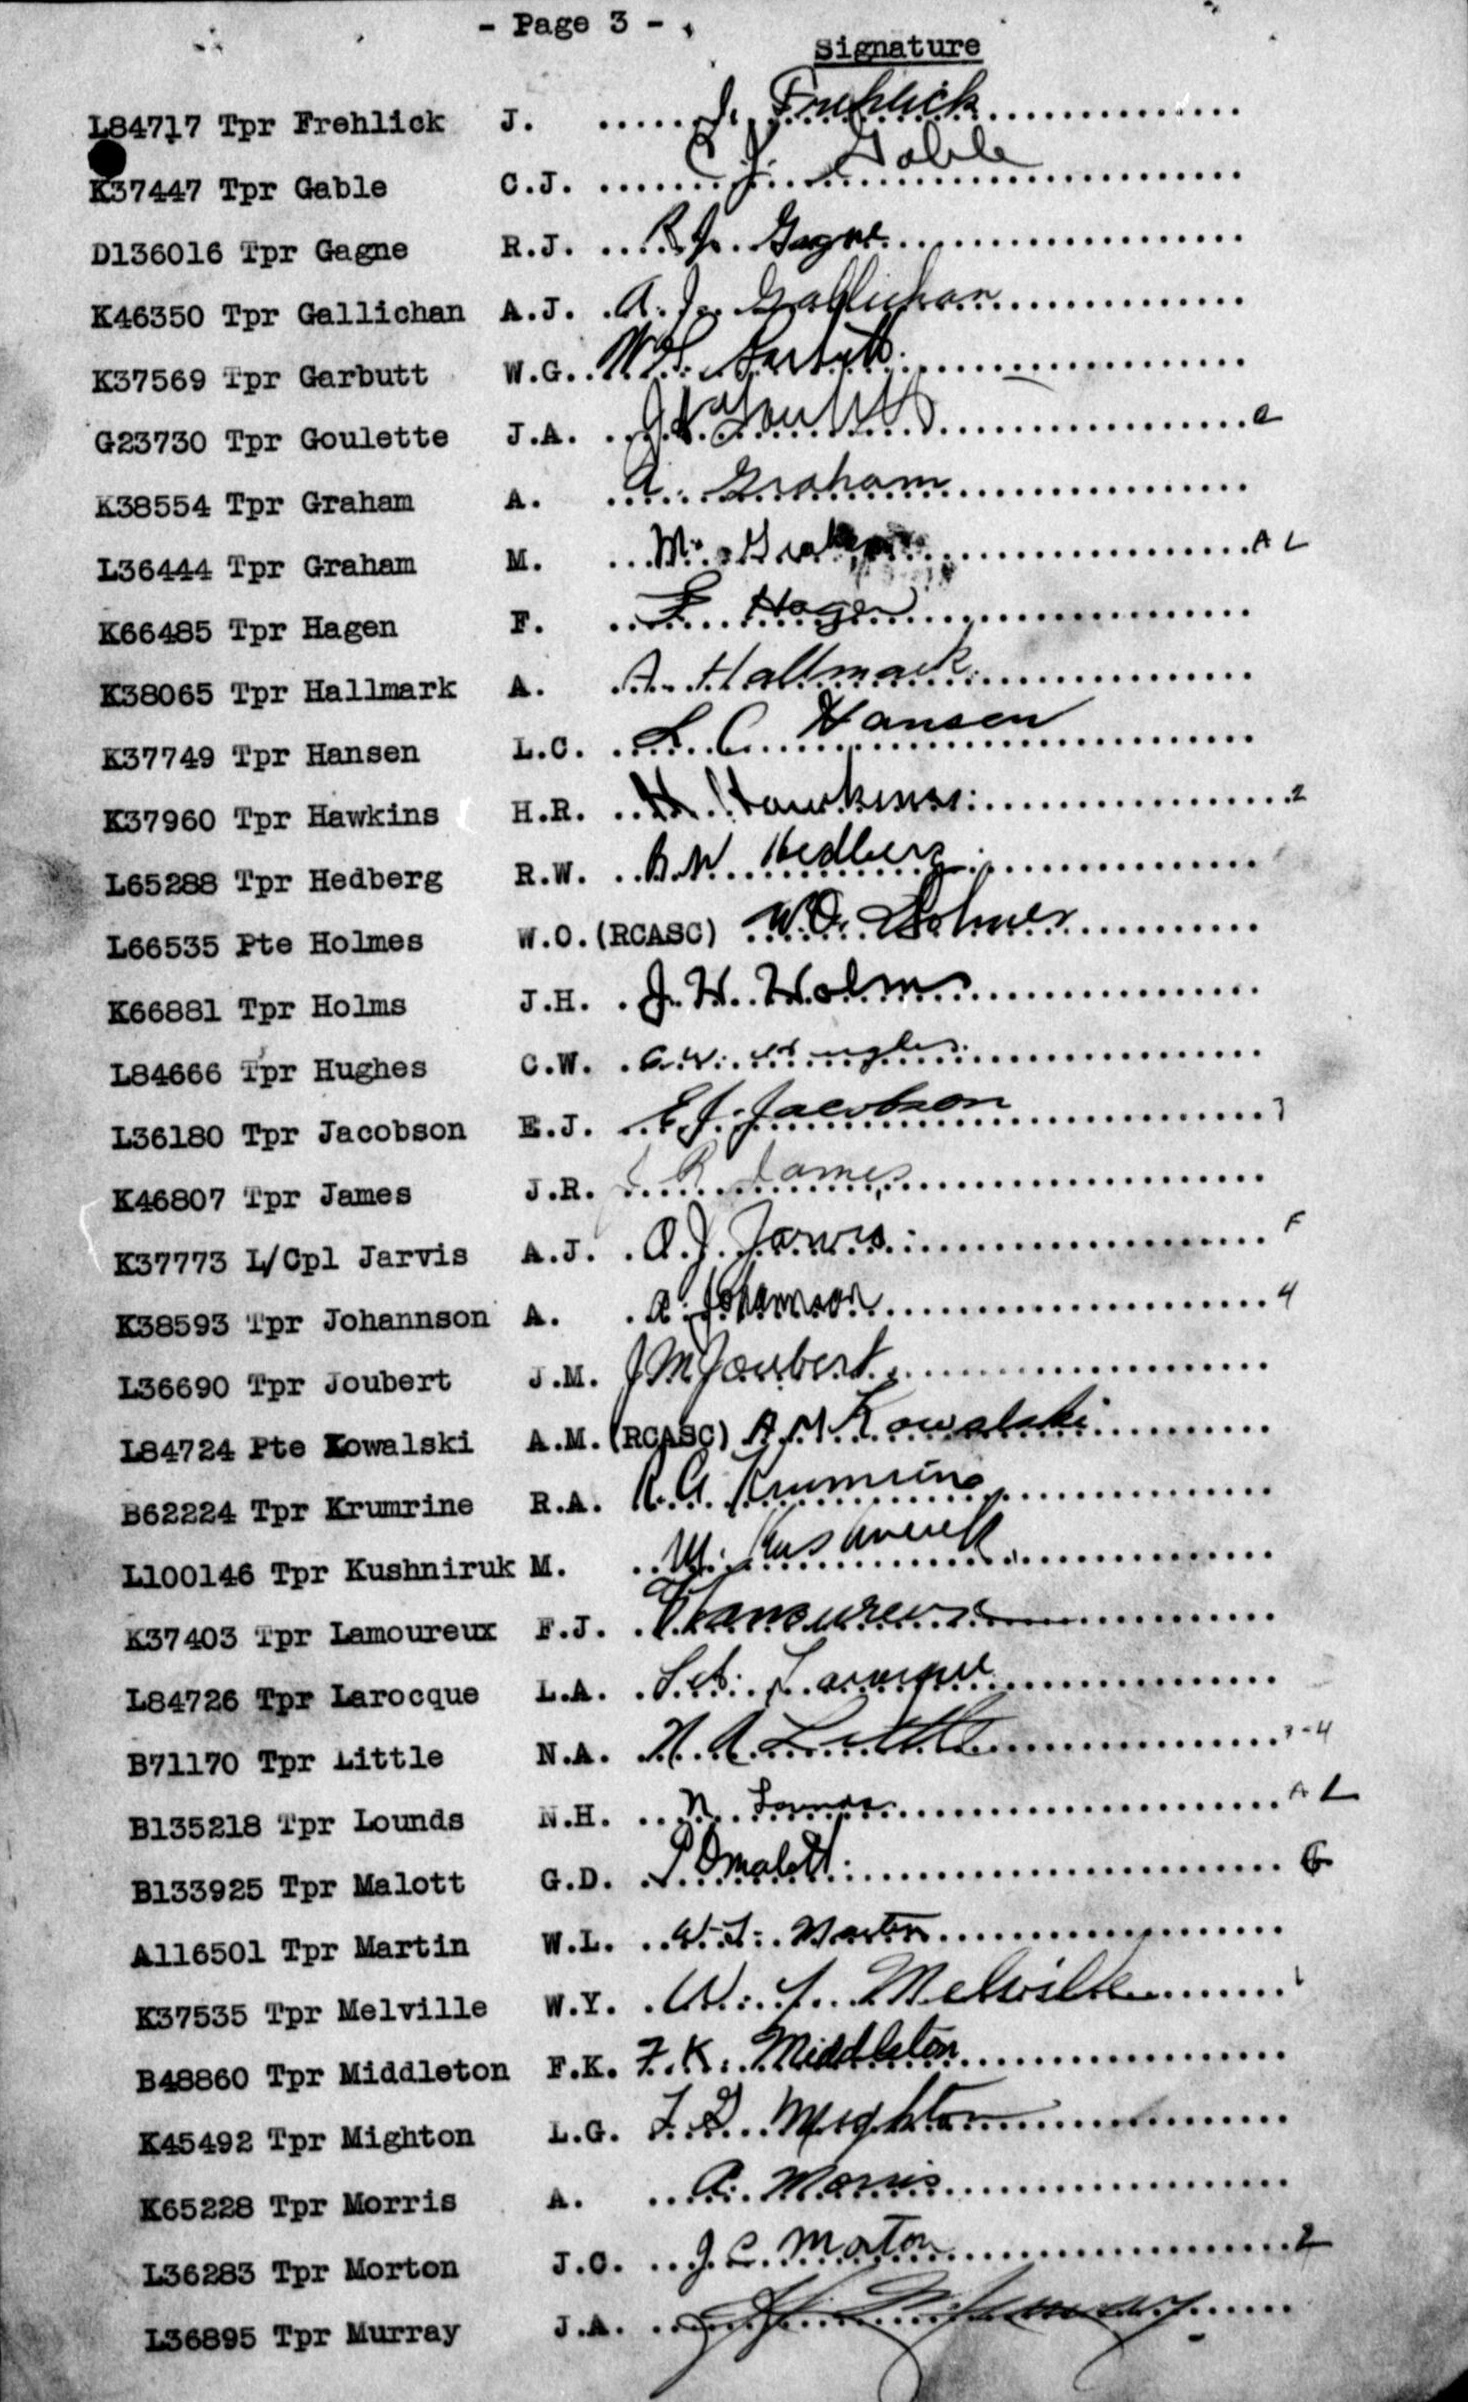 - Page 3 -
Signature
L84717 Tpr Frehlick J. ..... J. Frehlick
K37447 Tpr Gable C.J. ..... C. J. Gable
D136016 Tpr Gagne R.J. ... R. J. Gagne
K46350 Tpr Gallichan A.J. . A. J. Gallichan
K37569 Tpr Garbutt W.G. .. W.G. Garbutt
G23730 Tpr Goulette J.A. .. J A Goulette
K38554 Tpr Graham A. .... A. Graham
L36444 Tpr Graham M. ... M. Graham A L
K66485 Tpr Hagen F. .... F Hagen
K38065 Tpr Hallmark A. .. A. Hallmark
K37749 Tpr Hansen L.C. .. L C Hansen
K37960 Tpr Hawkins H.R. .. H. Hawkins 2
L65288 Tpr Hedberg R.W. .. R.W. Hedberg
L66535 Pte Holmes W.O.(RCASC) W.O. Holmes
K66881 Tpr Holms J.H. . J. H. Holms
L84666 Tpr Hughes C.W. . C.W. Hughes
L36180 Tpr Jacobson E.J. .. E J. Jacobson
K46807 Tpr James J.R. J R James
K37773 L/Cpl Jarvis A.J. . A. J. Jarvis F
K38593 Tpr Johannson A. . A. Johannson 4
L36690 Tpr Joubert J.M. J M Joubert
L84724 Pte Kowalski A.M.(RCASC) A M Kowalski
B62224 Tpr Krumrine R.A. R. A. Krumrine
L100146 Tpr Kushniruk M. .. M. Kushniruk
K37403 Tpr Lamoureux F.J. . F Lamoureux
L84726 Tpr Larocque L.A. . L.A. Larocque
B71170 Tpr Little N.A. . N. A. Little 3-4
B135218 Tpr Lounds N.H. .. N. Lounds A L
B133925 Tpr Malott G.D. . G D Malott G
A116501 Tpr Martin W.L. .. W. L. Martin
K37535 Tpr Melville W.Y. . W. Y. Melville
B48860 Tpr Middleton F.K. F. K. Middleton
K45492 Tpr Mighton L.G. L. G. Mighton
K65228 Tpr Morris A. ... A. Morris
L36283 Tpr Morton J.C. .. J. C. Morton 2
L36895 Tpr Murray J.A. .. J A Murray